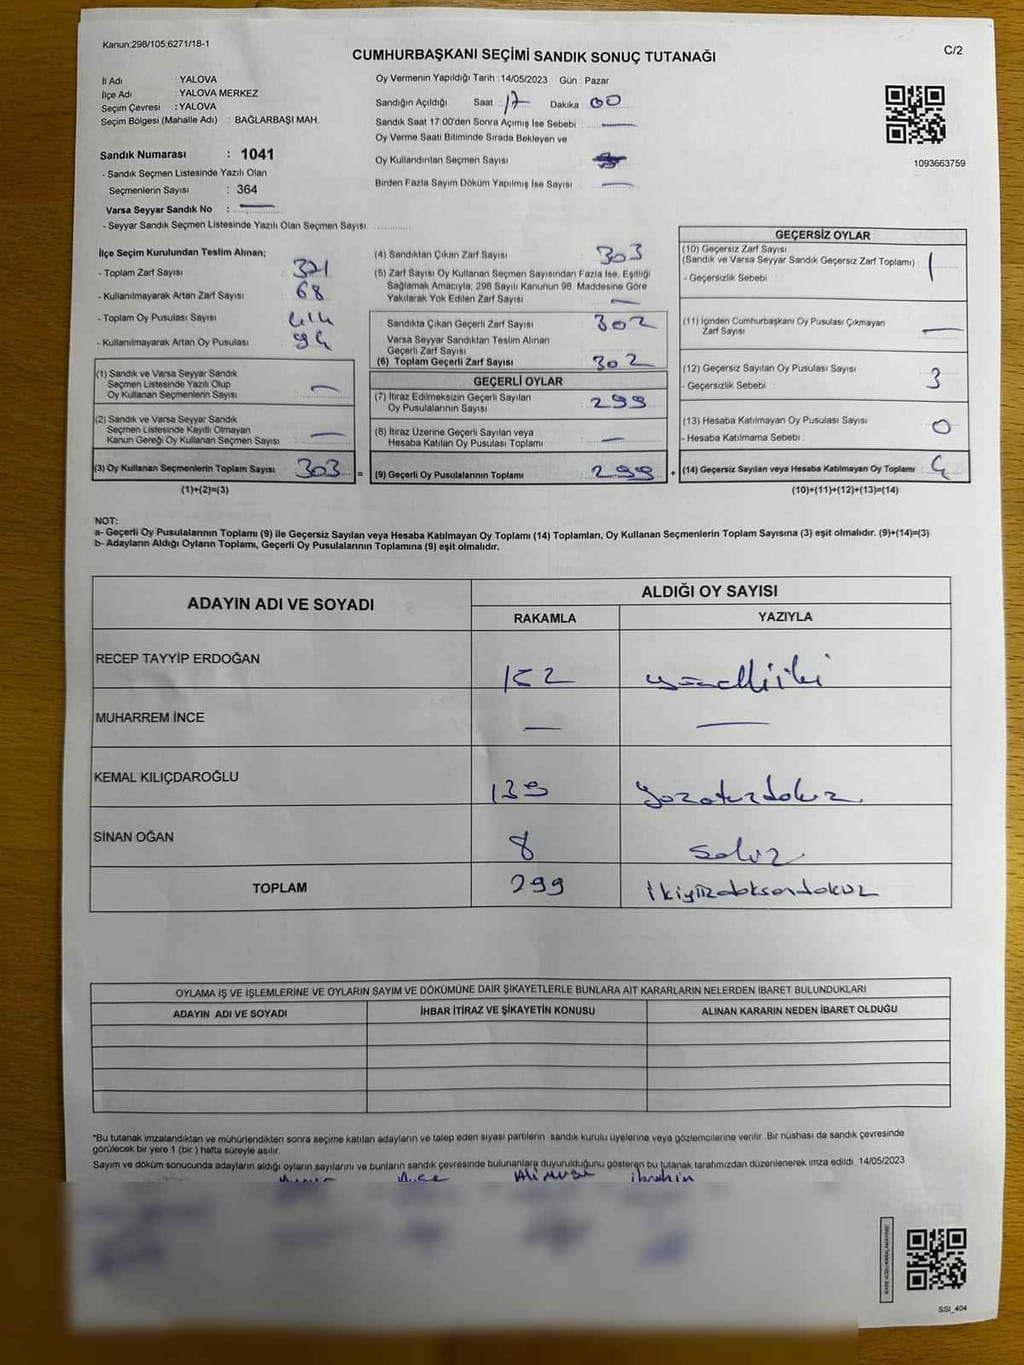 Kanun;298/105,6271/18-1
CUMHURBAŞKANI SEÇİMİ SANDIK SONUÇ TUTANAĞI
C/2
İl Adı : YALOVA
İlçe Adı : YALOVA MERKEZ
Seçim Çevresi : YALOVA
Seçim Bölgesi (Mahalle Adı) : BAĞLARBAŞI MAH.
Sandık Numarası : 1041
- Sandık Seçmen Listesinde Yazılı Olan
Seçmenlerin Sayısı : 364
Varsa Seyyar Sandık No : —
- Seyyar Sandık Seçmen Listesinde Yazılı Olan Seçmen Sayısı
Oy Vermenin Yapıldığı Tarih : 14/05/2023 Gün : Pazar
Sandığın Açıldığı Saat 17 Dakika 00
Sandık Saat 17:00'den Sonra Açımış İse Sebebi : —
Oy Verme Saati Bitiminde Sırada Bekleyen ve
Oy Kullandırılan Seçmen Sayısı
Birden Fazla Sayım Döküm Yapılmış İse Sayısı : —
1093663759
İlçe Seçim Kurulundan Teslim Alınan;
- Toplam Zarf Sayısı : 371
- Kullanılmayarak Artan Zarf Sayısı : 68
- Toplam Oy Pusulası Sayısı :
- Kullanılmayarak Artan Oy Pusulası : 94
(1) Sandık ve Varsa Seyyar Sandık
Seçmen Listesinde Yazılı Olup
Oy Kullanan Seçmenlerin Sayısı : —
(2) Sandık ve Varsa Seyyar Sandık
Seçmen Listesinde Kayıtlı Olmayan
Kanun Gereği Oy Kullanan Seçmen Sayısı : —
(3) Oy Kullanan Seçmenlerin Toplam Sayısı 303 =
(1)+(2)=(3)
(4) Sandıktan Çıkan Zarf Sayısı 303
(5) Zarf Sayısı Oy Kullanan Seçmen Sayısından Fazla İse, Eşitliği
Sağlamak Amacıyla; 298 Sayılı Kanunun 98. Maddesine Göre
Yakılarak Yok Edilen Zarf Sayısı —
Sandıkta Çıkan Geçerli Zarf Sayısı : 302
Varsa Seyyar Sandıktan Teslim Alınan
Geçerli Zarf Sayısı
(6) Toplam Geçerli Zarf Sayısı : 302
GEÇERLİ OYLAR
(7) İtiraz Edilmeksizin Geçerli Sayılan
Oy Pusulalarının Sayısı : 299
(8) İtiraz Üzerine Geçerli Sayılan veya
Hesaba Katılan Oy Pusulası Toplamı : —
(9) Geçerli Oy Pusulalarının Toplamı : 299 +
GEÇERSİZ OYLAR
(10) Geçersiz Zarf Sayısı
(Sandık ve Varsa Seyyar Sandık Geçersiz Zarf Toplamı) : 1
- Geçersizlik Sebebi :
(11) İçinden Cumhurbaşkanı Oy Pusulası Çıkmayan
Zarf Sayısı : —
(12) Geçersiz Sayılan Oy Pusulası Sayısı : 3
- Geçersizlik Sebebi :
(13) Hesaba Katılmayan Oy Pusulası Sayısı : 0
- Hesaba Katılmama Sebebi :
(14) Geçersiz Sayılan veya Hesaba Katılmayan Oy Toplamı : 4
(10)+(11)+(12)+(13)=(14)
NOT:
a- Geçerli Oy Pusulalarının Toplamı (9) ile Geçersiz Sayılan veya Hesaba Katılmayan Oy Toplamı (14) Toplamları, Oy Kullanan Seçmenlerin Toplam Sayısına (3) eşit olmalıdır. (9)+(14)=(3)
b- Adayların Aldığı Oyların Toplamı, Geçerli Oy Pusulalarının Toplamına (9) eşit olmalıdır.
ADAYIN ADI VE SOYADI
ALDIĞI OY SAYISI
RAKAMLA YAZIYLA
RECEP TAYYİP ERDOĞAN 152 yüzelliiki
MUHARREM İNCE — —
KEMAL KILIÇDAROĞLU 139 yüzotuzdokuz
SİNAN OĞAN 8 sekiz
TOPLAM 299 ikiyüzdoksandokuz
OYLAMA İŞ VE İŞLEMLERİNE VE OYLARIN SAYIM VE DÖKÜMÜNE DAİR ŞİKAYETLERLE BUNLARA AİT KARARLARIN NELERDEN İBARET BULUNDUKLARI
ADAYIN ADI VE SOYADI İHBAR İTİRAZ VE ŞİKAYETİN KONUSU ALINAN KARARIN NEDEN İBARET OLDUĞU
*Bu tutanak imzalandıktan ve mühürlendikten sonra seçime katılan adayların ve talep eden siyasi partilerin sandık kurulu üyelerine veya gözlemcilerine verilir. Bir nüshası da sandık çevresinde
görülecek bir yere 1 (bir ) hafta süreyle asılır.
Sayım ve döküm sonucunda adayların aldığı oyların sayılarını ve bunların sandık çevresinde bulunanlara duyurulduğunu gösteren bu tutanak tarafımızdan düzenlenerek imza edildi. 14/05/2023
ibrahim
SSI_404